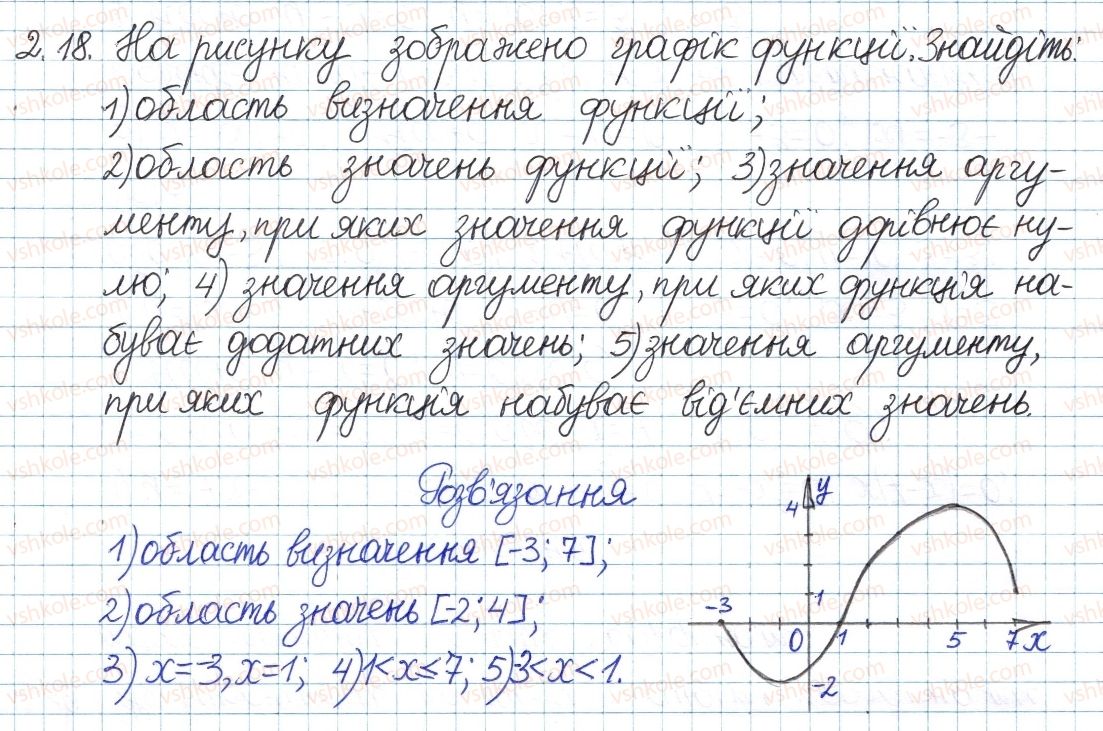 2.18. На рисунку зображено графік функції. Знайдіть:
1) область визначення функції;
2) область значень функції; 3) значення аргу-
менту, при яких значення функції дорівнює ну-
лю; 4) значення аргументу, при яких функція на-
буває додатних значень; 5) значення аргументу,
при яких функція набуває від'ємних значень.
Розв'язання
1) область визначення [-3; 7];
2) область значень [-2; 4];
3) x=-3, x=1; 4) 1<x≤7; 5) -3<x<1.
4 y
-3 1
0 1 5 7 x
-2